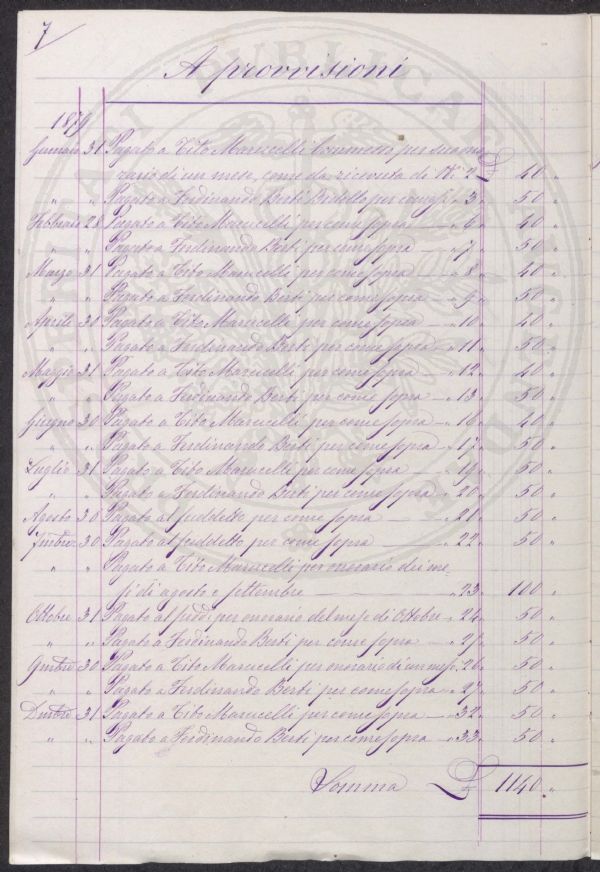 7
Aprovvisioni
1879
Gennaio 31 Pagato a Tito Marucelli Commesso per suo ono
rario di un mese, come da ricevuta di N. 2 £ 40 "
" " Pagato a Ferdinando Berti Bidello per come s. " 3 " 50 "
Febbraio 28 Pagato a Tito Marucelli per come sopra — " 6 " 40 "
" " Pagato a Ferdinando Berti per come sopra — " 7 " 50 "
Marzo 31 Pagato a Tito Marucelli per come sopra — " 8 " 40 "
" " Pagato a Ferdinando Berti per come sopra — " 9 " 50 "
Aprile 30 Pagato a Tito Marucelli per come sopra — " 10 " 40 "
" " Pagato a Ferdinando Berti per come sopra " 11 " 50 "
Maggio 31 Pagato a Tito Marucelli per come sopra — " 12 " 40 "
" " Pagato a Ferdinando Berti per come sopra — " 13 " 50 "
Giugno 30 Pagato a Tito Marucelli per come sopra — " 16 " 40 "
" " Pagato a Ferdinando Berti per come sopra — " 17 " 50 "
Luglio 31 Pagato a Tito Marucelli per come sopra — " 19 " 50 "
" " Pagato a Ferdinando Berti per come sopra " 20 " 50 "
Agosto 30 Pagato al suddetto per come sopra — " 21 " 50 "
7mbre 30 Pagato al suddetto per come sopra — " 22 " 50 "
" " Pagato a Tito Marucelli per onorario dei me
si di agosto e settembre — " 23 " 100 "
Ottobre 31 Pagato al sudd. per onorario del mese di Ottobre " 24 " 50 "
" " Pagato a Ferdinando Berti per come sopra — " 25 " 50 "
9mbre 30 Pagato a Tito Marucelli per onorario di un mese " 26 " 50 "
" " Pagato a Ferdinando Berti per come sopra " 27 " 50 "
Dmbre 31 Pagato a Tito Marucelli per come sopra — " 32 " 50 "
" " Pagato a Ferdinando Berti per come sopra — " 33 " 50 "
Somma £ 1140 "